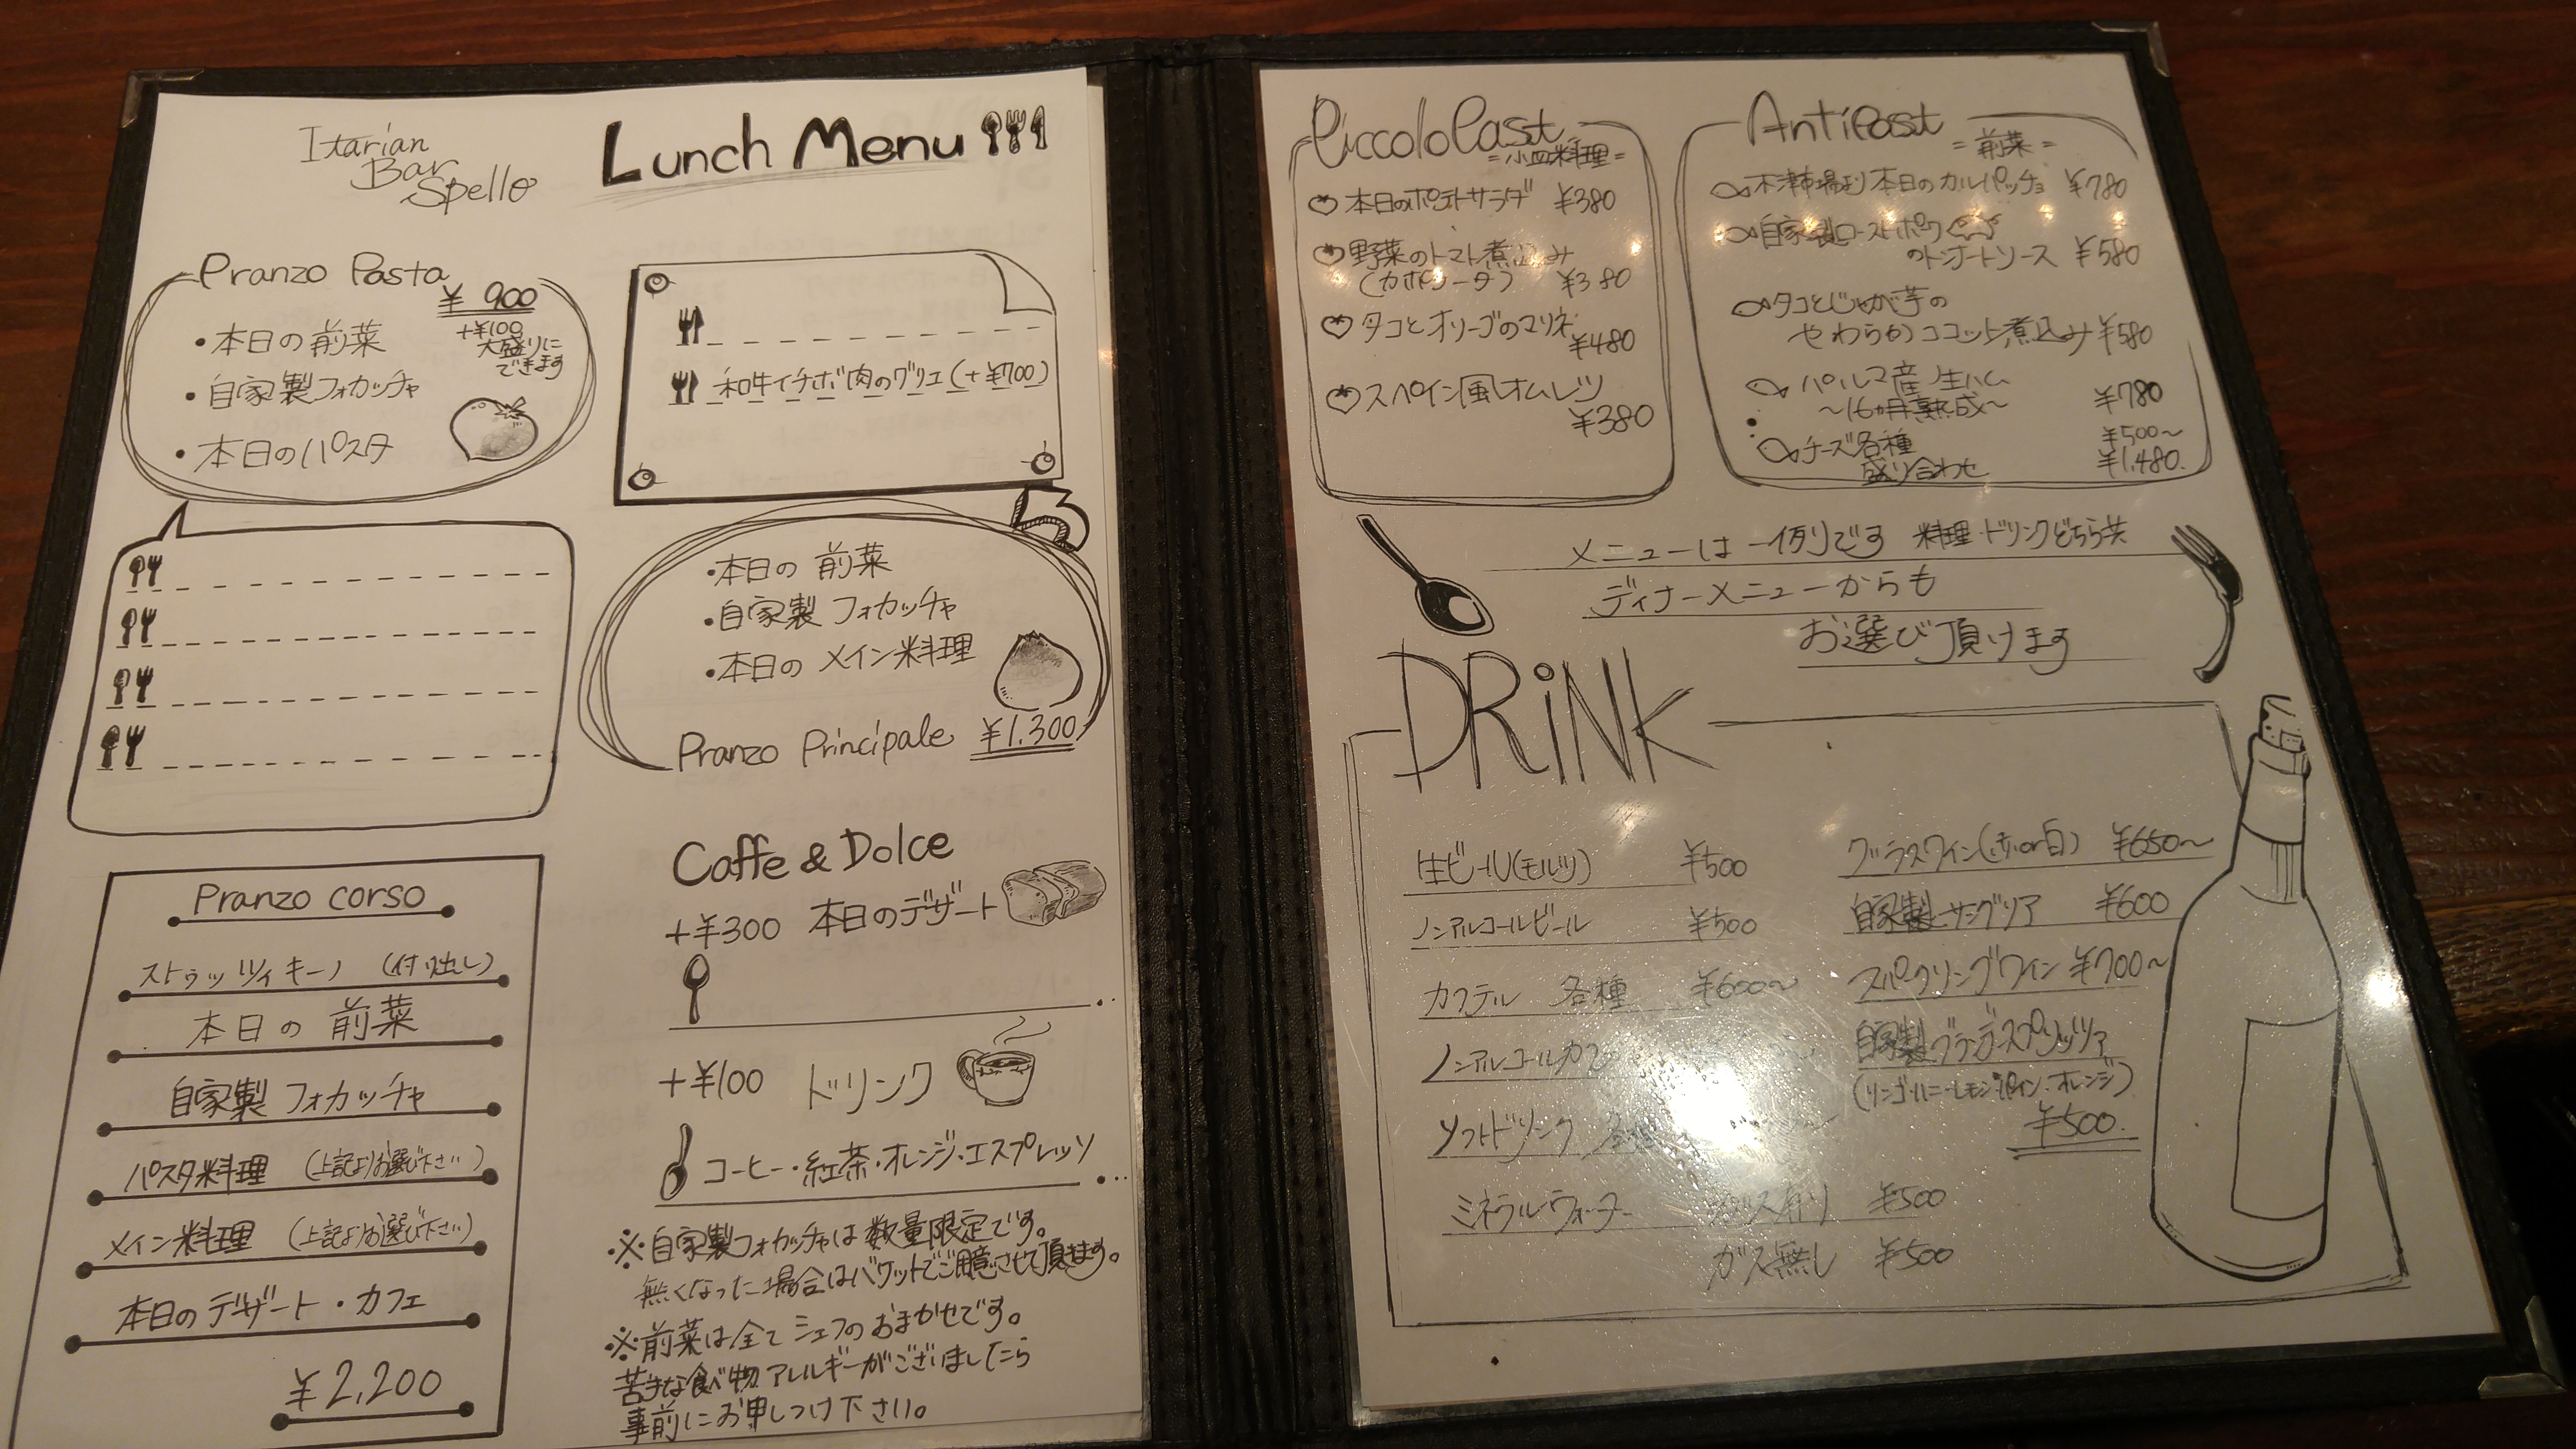 Itarian
Bar
Spello
Lunch Menu
Pranzo Pasta
¥ 900
+¥100
大盛りに
できます
・本日の前菜
・自家製フォカッチャ
・本日のパスタ
和牛イチボ肉のグリエ(+¥700)
・本日の 前菜
・自家製 フォカッチャ
・本日の メイン料理
Pranzo Principale ¥1.300
Pranzo corso
ストゥッツィキーノ (付け出し)
本日の 前菜
自家製 フォカッチャ
パスタ料理 (上記よりお選び下さい)
メイン料理 (上記よりお選び下さい)
本日の デザート・カフェ
¥2,200
Caffe & Dolce
+¥300 本日のデザート
+¥100 ドリンク
コーヒー・紅茶・オレンジ・エスプレッソ
※自家製フォカッチャは数量限定です。
無くなった場合はバケットでご用意させて頂きます。
※前菜は全て シェフの おまかせです。
苦手な食べ物 アレルギーがございましたら
事前にお申しつけ下さい。
Piccolo Past
=小皿料理=
本日のポテトサラダ ¥380
野菜のトマト煮込み
(カポナータ) ¥380
タコとオリーブのマリネ
¥480
スペイン風オムレツ
¥380
AntiPast
=前菜=
木津市場より本日のカルパッチョ ¥780
自家製ローストポーク
のトンナートソース ¥580
タコとじゃが芋の
やわらかココット煮込み ¥580
パルマ産 生ハム
〜16ヵ月熟成〜 ¥780
チーズ各種 ¥500〜
盛り合わせ ¥1.480.
メニューは一例です 料理・ドリンクどちら共
ディナーメニューからも
お選び頂けます
DRiNK
生ビール(モルツ) ¥500
ノンアルコールビール ¥500
カクテル 各種 ¥600〜
ノンアルコールカ
ソフトドリンク
ミネラルウォーター ガス有り ¥500
ガス無し ¥500
グラスワイン(赤or白) ¥650〜
自家製サングリア ¥600
スパークリングワイン ¥700〜
自家製
(リンゴ・ハニーレモン・パイン・オレンジ)
¥500.